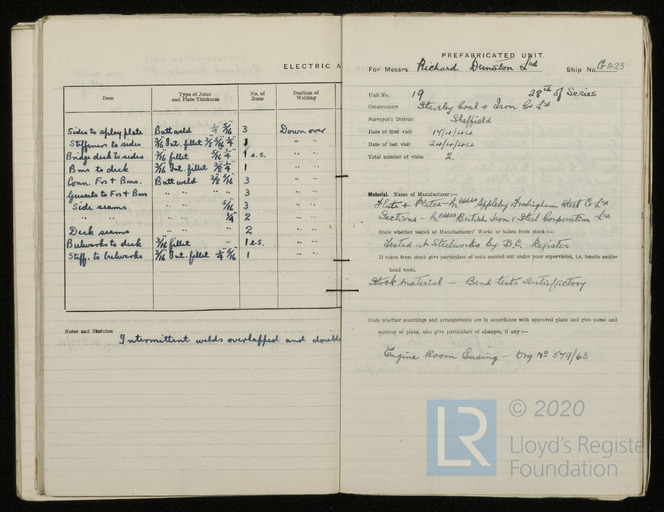 ELECTRIC A
Item Type of Joint and Plate Thickness No. of Runs Position of Welding
Sides to apley plate Butt weld ¼ 5/16 3 Down over
Stiffeners to sides 3/16 Int. fillet 5/16 ¼ 1 " "
Bridge deck to sides 3/16 fillet 5/16 ¼ 1 e.s. " "
Bms to deck 3/16 Int. fillet 3/8 ¼ 1 " "
Conn. Frs + Bms. Butt weld 3/8 5/16 3 " "
Gussets to Frs + Bms " " " " 3 " "
Side seams " " 5/16 3 " "
" " " " ¼ 2 " "
Deck seams " " " 2 " "
Bulworks to deck 3/16 fillet " 1 e.s. " "
Stiff. to bulworks 3/16 Int. fillet ¼ 5/16 1 " "
Notes and Sketches
Intermittent welds overlapped and double
PREFABRICATED UNIT.
For Messrs. Richard Dunston Ltd Ship No. G 423
Unit No. 19 28th of Series
Constructors Staveley Coal & Iron Co Ltd
Surveyor's District Sheffield
Date of first visit 17/4/44
Date of last visit 24/4/44
Total number of visits 2.
Material. Name of Manufacturer:—
Flats & Plates - Messrs Appleby Frodingham Steel Co Ltd
Sections - Messrs British Iron & Steel Corporation Ltd
State whether tested at Manufacturers' Works or taken from stock:—
Tested at Steelworks by B.C. Register
If taken from stock give particulars of tests carried out under your supervision, i.e. tensile and/or
bend tests.
Stock material - Bend tests Satisfactory
State whether scantlings and arrangements are in accordance with approved plans and give name and
number of plans, also give particulars of changes, if any:—
Engine Room Casing - Drg No 549/63
LR
© 2020
Lloyd's Registe
Foundation